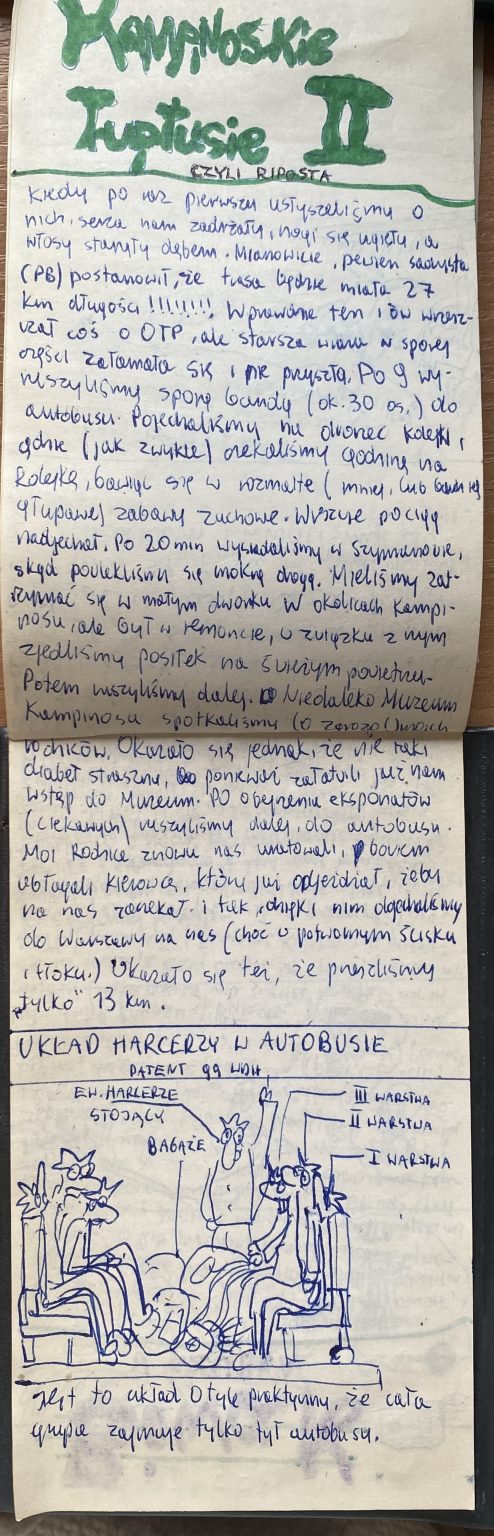 KAMPINOSKIE
Tuptusie II
CZYLI RIPOSTA
Kiedy po raz pierwszy usłyszeliśmy o
nich, serca nam zadrżały, nogi się ugięły, a
włosy stanęły dębem. Mianowicie, pewien sadysta
(PB) postanowił, że trasa będzie miała 27
km długości !!!!!!!!. Wprawdzie ten i ów wrzesz-
czał coś o OTP, ale starsza wiara w sporej
części załamała się i nie przyszła. Po 9 wy-
ruszyliśmy sporą bandą (ok. 30 os.) do
autobusu. Pojechaliśmy na dworzec kolejki,
gdzie (jak zwykle) czekaliśmy godzinę na
kolejkę, bawiąc się w rozmaite (mniej, lub bardziej
głupawe) zabawy zuchowe. Wreszcie pociąg
nadjechał. Po 20 min wysiadaliśmy w Szymanowie,
skąd powlekliśmy się mokrą drogą. Mieliśmy zat-
rzymać się w małym dworku w okolicach Kampi-
nosu, ale był w remoncie, w związku z czym
zjedliśmy posiłek na świeżym powietrzu.
Potem ruszyliśmy dalej. Niedaleko Muzeum
Kampinosu spotkaliśmy (o zgrozo!) moich
rodziców. Okazało się jednak, że nie taki
diabeł straszny, ponieważ załatwili już nam
wstęp do Muzeum. Po obejrzeniu eksponatów
(ciekawych) ruszyliśmy dalej, do autobusu.
Moi Rodzice znowu nas uratowali, bowiem
ubłagali kierowcę, który już odjeżdżał, żeby
na nas zaczekał. i tak, dzięki nim dojechaliśmy
do Warszawy na nas (choć w potwornym ścisku
i tłoku.) Okazało się też, że przeszliśmy
"tylko" 13 km.
UKŁAD HARCERZY W AUTOBUSIE
PATENT 99 WDH
EW. HARCERZE
STOJĄCY
BAGAŻE
III WARSTWA
II WARSTWA
I WARSTWA
Jest to układ o tyle praktyczny, że cała
grupa zajmuje tylko tył autobusu.